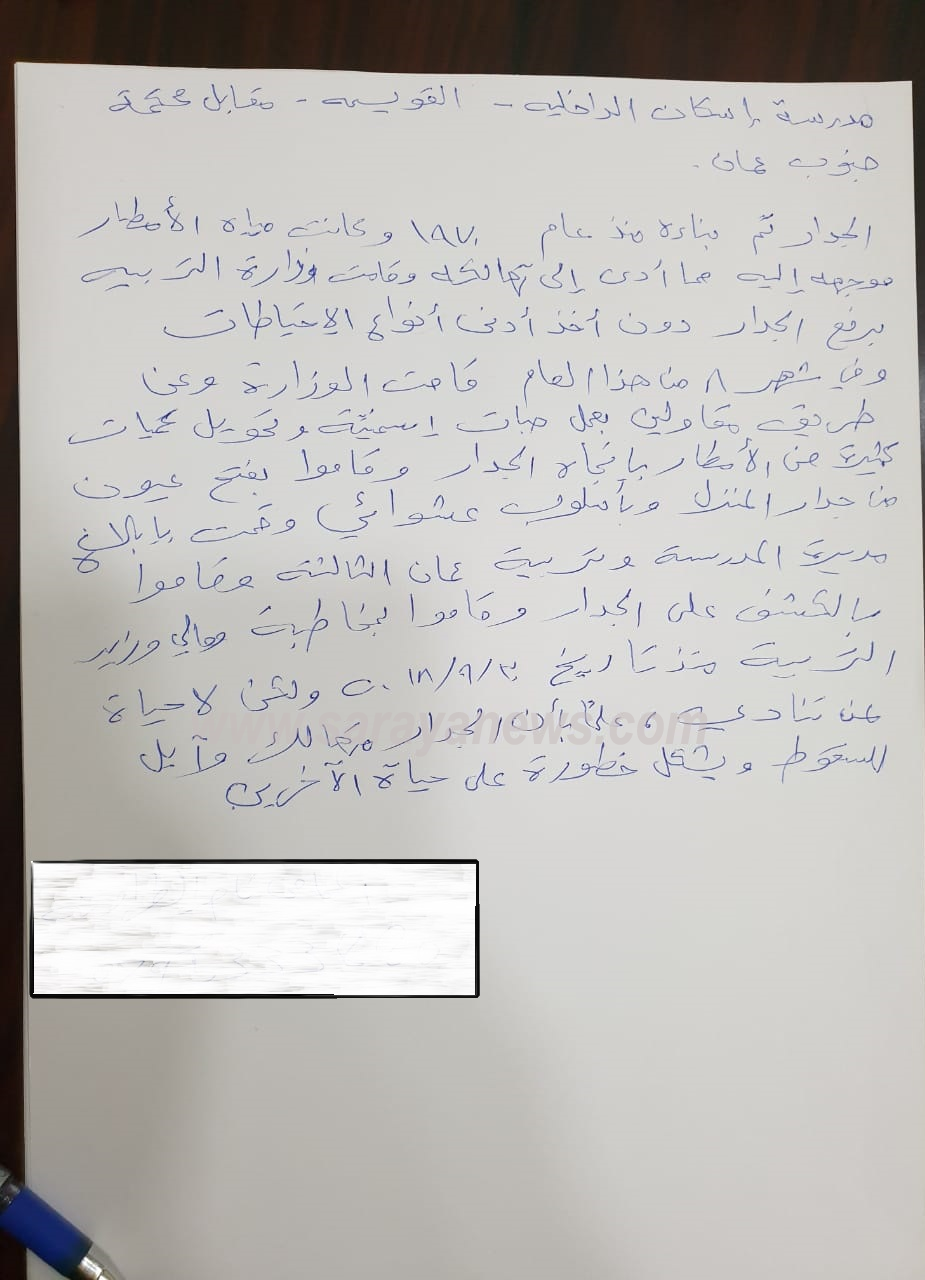 مدرسة إسكان الداخليه - القويسمه - مقابل محكمة
جنوب عمان.
الجدار تم بناءه منذ عام ١٩٧٠ وكانت مياه الأمطار
موجهه إليه مما أدى إلى تهالكه وقامت وزارة التربيه
برفع الجدار دون أخذ أدنى أنواع الإحتياطات
وفي شهر ٨ من هذا العام قامت الوزارة وعن
طريق مقاولين بعمل صبات إسمنتية وتحويل كميات
كثيرة من الأمطار بإتجاه الجدار وقاموا بفتح عيون
من جدار المنزل وبأسلوب عشوائي وقمت بإبلاغ
مديرة المدرسة وتربية عمان الثالثة وقاموا
بالكشف على الجدار وقاموا بمخاطبة معالي وزير
التربية منذ تاريخ ٢٠١٨/٩/٣٠ ولكن لا حياة
لمن تنادي، علماً بأن الجدار متهالك وآيل
للسقوط ويشكل خطورة على حياة الآخرين
www.sarayanews.com